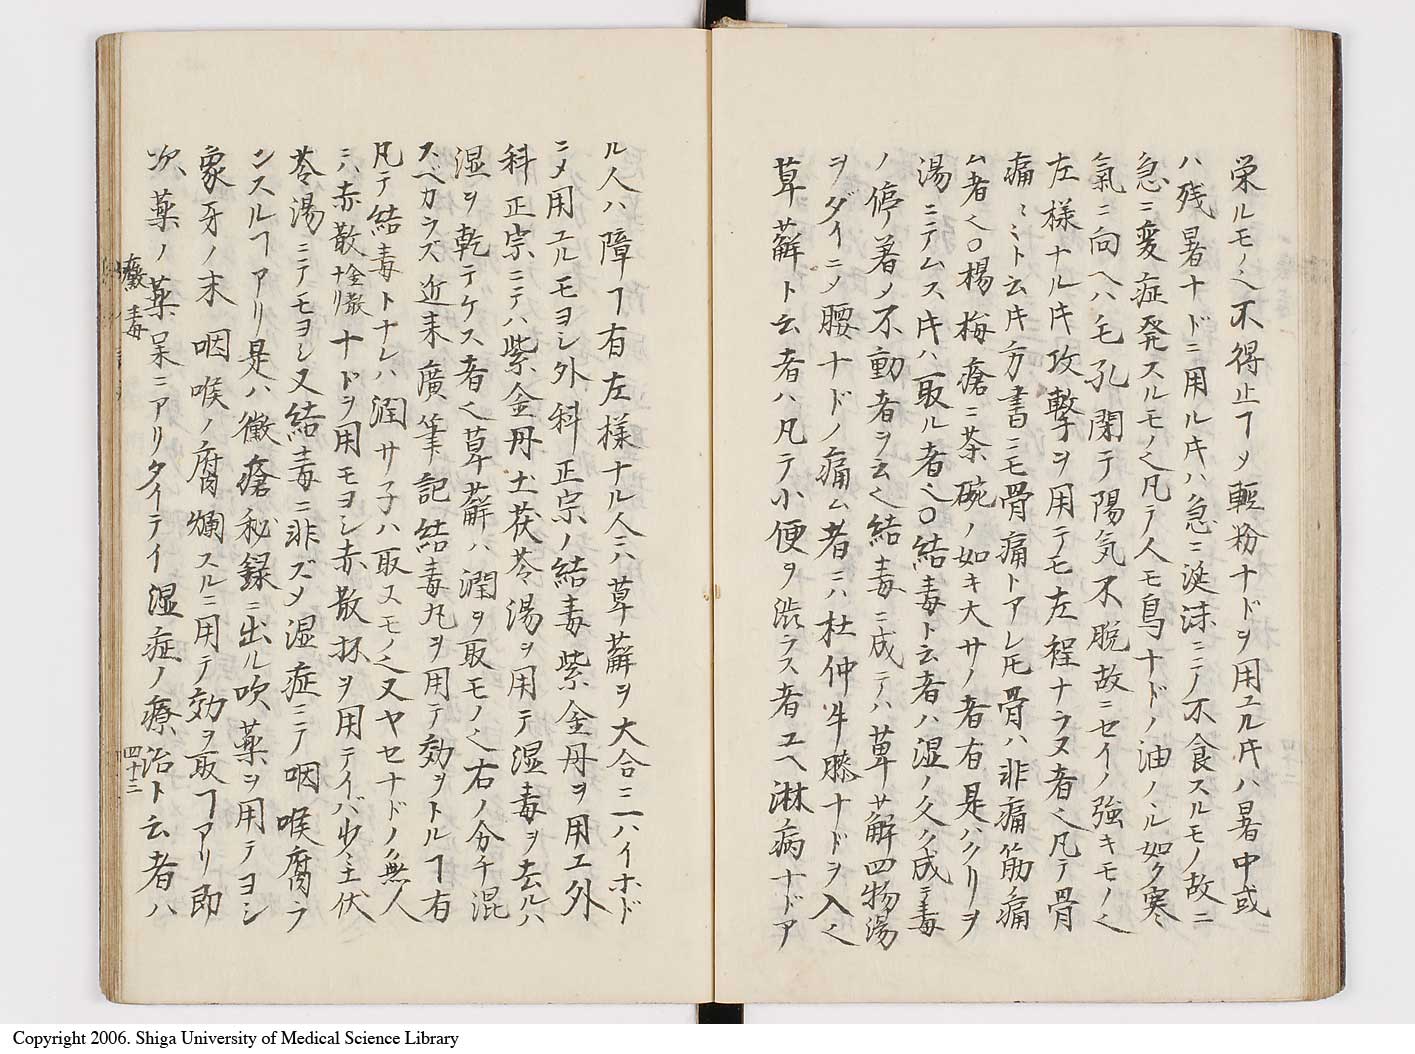 栄ルモノ也不得止ヿメ軽粉ナドヲ用ユル𪜈ハ暑中或
ハ残暑ナドニ用ル𪜈ハ急ニ涎沫ニテ不食スルモノ故ニ
急ニ変症発スルモノ也凡テ人モ鳥ナドノ油ノル如ク寒
氣ニ向ヘハ毛孔閉テ陽気不脱故ニセイノ強キモノ也
左様ナル𪜈攻撃ヲ用テモ左程ナラヌ者也凡テ骨
痛ミト云𪜈方書ニモ骨痛トアレ𪜈骨ハ非痛筋痛
ム者也〇楊梅瘡ニ茶碗ノ如キ大サノ者有是ハクリヲ
湯ニテムス𪜈ハ取ル者也〇結毒ト云者ハ湿ノ久ク成テ毒
ノ停着ノ不動者ヲ云也結毒ニ成テハ萆薢四物湯
ヲダイニノ腰ナドノ痛ム者ニハ杜仲牛膝ナドヲ入也
萆薢ト云者ハ凡テ小便ヲ渋ラス者ユヘ淋病ナドア
ル人ハ障ヿ有左様ナル人ニハ萆薢ヲ大合ニ一ハイホド
ニメ用ユルモヨシ外科正宗ノ結毒紫金丹ヲ用エ外
科正宗ニテハ紫金丹土茯苓湯ヲ用テ湿毒ヲ去ルハ
湿ヲ乾テケス者也萆薢ハ潤ヲ取モノ也右ノ分チ混
スベカラズ近来廣筆記結毒丸ヲ用テ効ヲトルヿ有
凡テ結毒トナレハ潤サ子ハ取スモノ也又ヤセナドノ無人
ニハ赤散ナドヲ用モヨシ赤散抔ヲ用テイバ少ミ土伏
苓湯ニテモヨシ又結毒ニ非ズメ湿症ニテ咽喉腐ラ
ンスルヿアリ是ハ黴瘡秘録ニ出ル吹薬ヲ用テヨシ
象牙ノ末咽喉ノ腐爛スルニ用テ効ヲ取ヿアリ即
吹薬ノ薬呆ニアリタイテイ湿症ノ療治ト云者ハ
黴毒
四十三
Copyright 2006. Shiga University of Medical Science Library